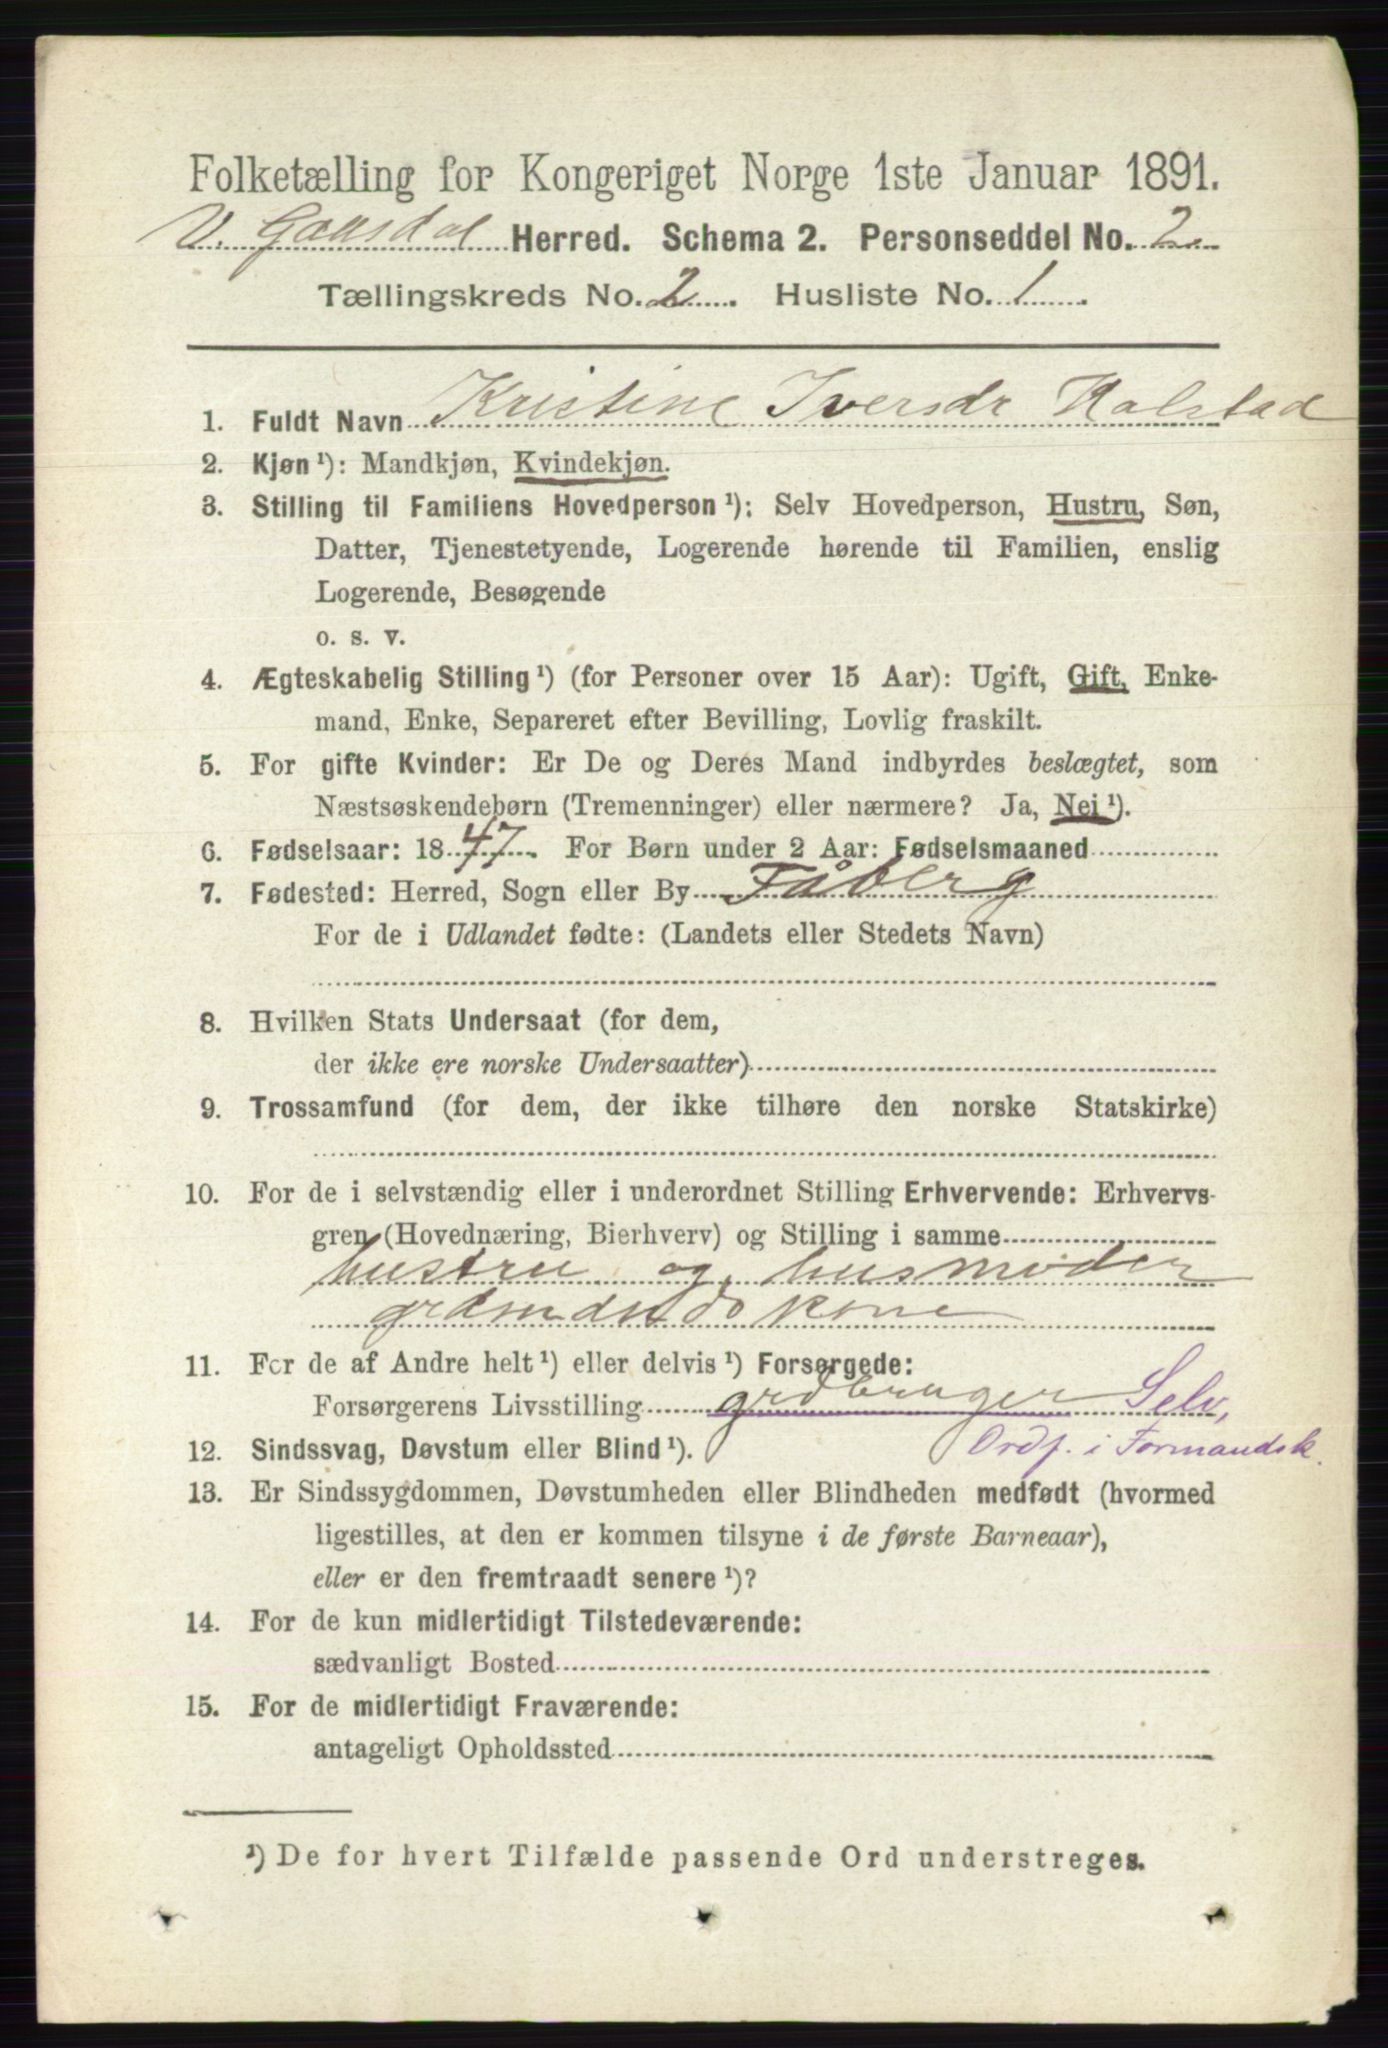 Folketælling for Kongeriget Norge 1ste Januar 1891.
V. Gausdal Herred. Schema 2. Personseddel No. 2
Tællingskreds No. 2. Husliste No. 1
1. Fuldt Navn Kristine Iversdr Kalstad
2. Kjøn ¹): Mandkjøn, Kvindekjøn.
3. Stilling til Familiens Hovedperson ¹): Selv Hovedperson, Hustru, Søn,
Datter, Tjenestetyende, Logerende hørende til Familien, enslig
Logerende, Besøgende
o. s. v.
4. Ægteskabelig Stilling ¹) (for Personer over 15 Aar): Ugift, Gift, Enke-
mand, Enke, Separeret efter Bevilling, Lovlig fraskilt.
5. For gifte Kvinder: Er De og Deres Mand indbyrdes beslægtet, som
Næstsøskendebørn (Tremenninger) eller nærmere? Ja, Nei ¹).
6. Fødselsaar: 1847. For Børn under 2 Aar: Fødselsmaaned
7. Fødested: Herred, Sogn eller By Fåberg
For de i Udlandet fødte: (Landets eller Stedets Navn)
8. Hvilken Stats Undersaat (for dem,
der ikke ere norske Undersaatter)
9. Trossamfund (for dem, der ikke tilhøre den norske Statskirke)
10. For de i selvstændig eller i underordnet Stilling Erhvervende: Erhvervs-
gren (Hovednæring, Bierhverv) og Stilling i samme
hustru og husmoder
grdmands kone
11. For de af Andre helt ¹) eller delvis ¹) Forsørgede:
Forsørgerens Livsstilling grdbruger Selv,
12. Sindssvag, Døvstum eller Blind ¹). Ordf. i Formandsk.
13. Er Sindssygdommen, Døvstumheden eller Blindheden medfødt (hvormed
ligestilles, at den er kommen tilsyne i de første Barneaar),
eller er den fremtraadt senere ¹)?
14. For de kun midlertidigt Tilstedeværende:
sædvanligt Bosted
15. For de midlertidigt Fraværende:
antageligt Opholdssted
¹) De for hvert Tilfælde passende Ord understreges.